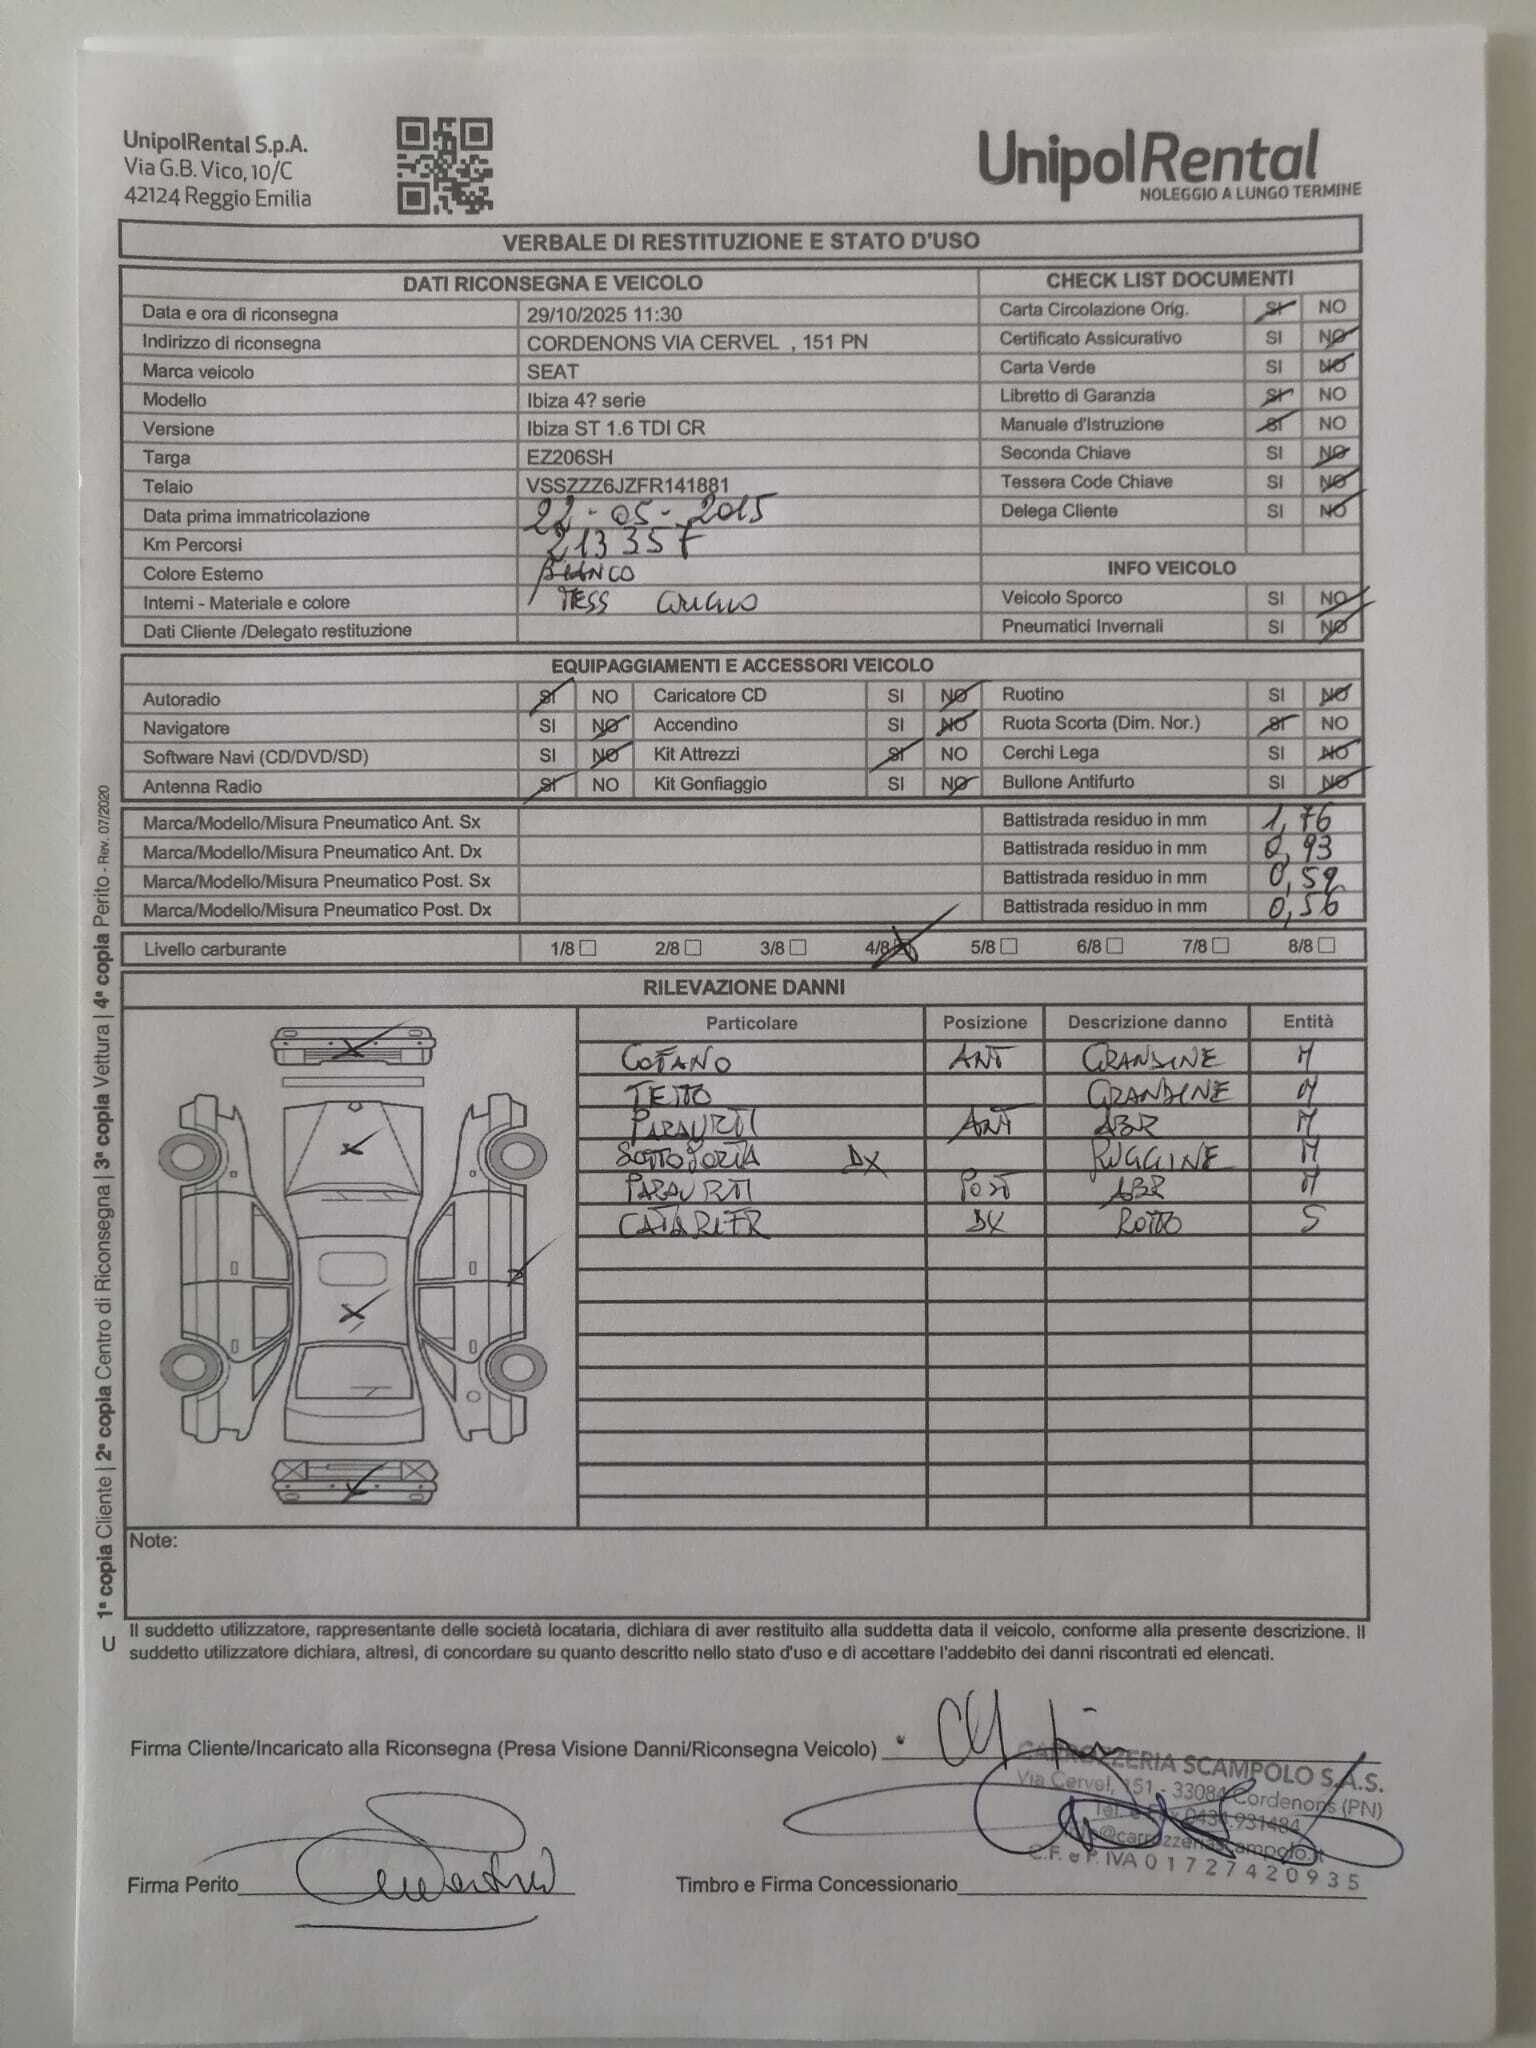 UnipolRental S.p.A.
Via G.B. Vico, 10/C
42124 Reggio Emilia
UnipolRental
NOLEGGIO A LUNGO TERMINE
VERBALE DI RESTITUZIONE E STATO D'USO
DATI RICONSEGNA E VEICOLO
Data e ora di riconsegna 29/10/2025 11:30
Indirizzo di riconsegna CORDENONS VIA CERVEL , 151 PN
Marca veicolo SEAT
Modello Ibiza 4? serie
Versione Ibiza ST 1.6 TDI CR
Targa EZ206SH
Telaio VSSZZZ6JZFR141881
Data prima immatricolazione 22-05-2015
Km Percorsi 213357
Colore Esterno BIANCO
Interni - Materiale e colore TESS GRIGIO
Dati Cliente /Delegato restituzione
CHECK LIST DOCUMENTI
Carta Circolazione Orig. SI NO
Certificato Assicurativo SI NO
Carta Verde SI NO
Libretto di Garanzia SI NO
Manuale d'Istruzione SI NO
Seconda Chiave SI NO
Tessera Code Chiave SI NO
Delega Cliente SI NO
INFO VEICOLO
Veicolo Sporco SI NO
Pneumatici Invernali SI NO
EQUIPAGGIAMENTI E ACCESSORI VEICOLO
Autoradio SI NO Caricatore CD SI NO Ruotino SI NO
Navigatore SI NO Accendino SI NO Ruota Scorta (Dim. Nor.) SI NO
Software Navi (CD/DVD/SD) SI NO Kit Attrezzi SI NO Cerchi Lega SI NO
Antenna Radio SI NO Kit Gonfiaggio SI NO Bullone Antifurto SI NO
Marca/Modello/Misura Pneumatico Ant. Sx Battistrada residuo in mm 1,76
Marca/Modello/Misura Pneumatico Ant. Dx Battistrada residuo in mm 0,93
Marca/Modello/Misura Pneumatico Post. Sx Battistrada residuo in mm 0,59
Marca/Modello/Misura Pneumatico Post. Dx Battistrada residuo in mm 0,56
Livello carburante 1/8 2/8 3/8 4/8 5/8 6/8 7/8 8/8
RILEVAZIONE DANNI
Particolare Posizione Descrizione danno Entità
COFANO ANT GRANDINE M
TETTO GRANDINE M
PARAURTI ANT ABR M
SOTTOPORTA DX RUGGINE M
PARAURTI POST ABR M
CATARIFR DX ROTTO S
Note:
Il suddetto utilizzatore, rappresentante delle società locataria, dichiara di aver restituito alla suddetta data il veicolo, conforme alla presente descrizione. Il
suddetto utilizzatore dichiara, altresì, di concordare su quanto descritto nello stato d'uso e di accettare l'addebito dei danni riscontrati ed elencati.
Firma Cliente/Incaricato alla Riconsegna (Presa Visione Danni/Riconsegna Veicolo)
CARROZZERIA SCAMPOLO S.A.S.
Via Cervel, 151 - 33084 Cordenons (PN)
Tel. e Fax 0434.931484
info@carrozzeriascampolo.it
C.F. e P. IVA 01727420935
Firma Perito Timbro e Firma Concessionario
U 1ª copia Cliente | 2ª copia Centro di Riconsegna | 3ª copia Vettura | 4ª copia Perito - Rev. 07/2020